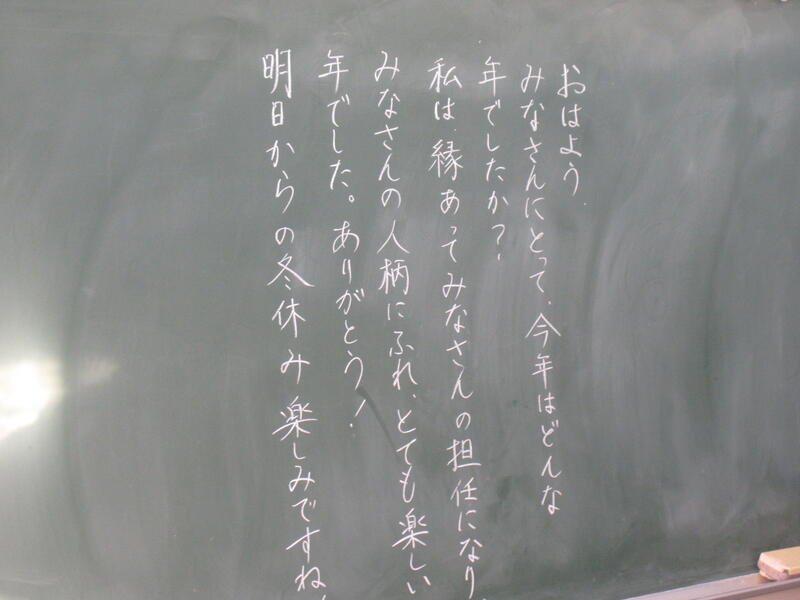 おはよう。
みなさんにとって、今年はどんな
年でしたか？
私は、縁あってみなさんの担任になり、
みなさんの人柄にふれ、とても楽しい
年でした。ありがとう！
明日からの冬休み楽しみですね！